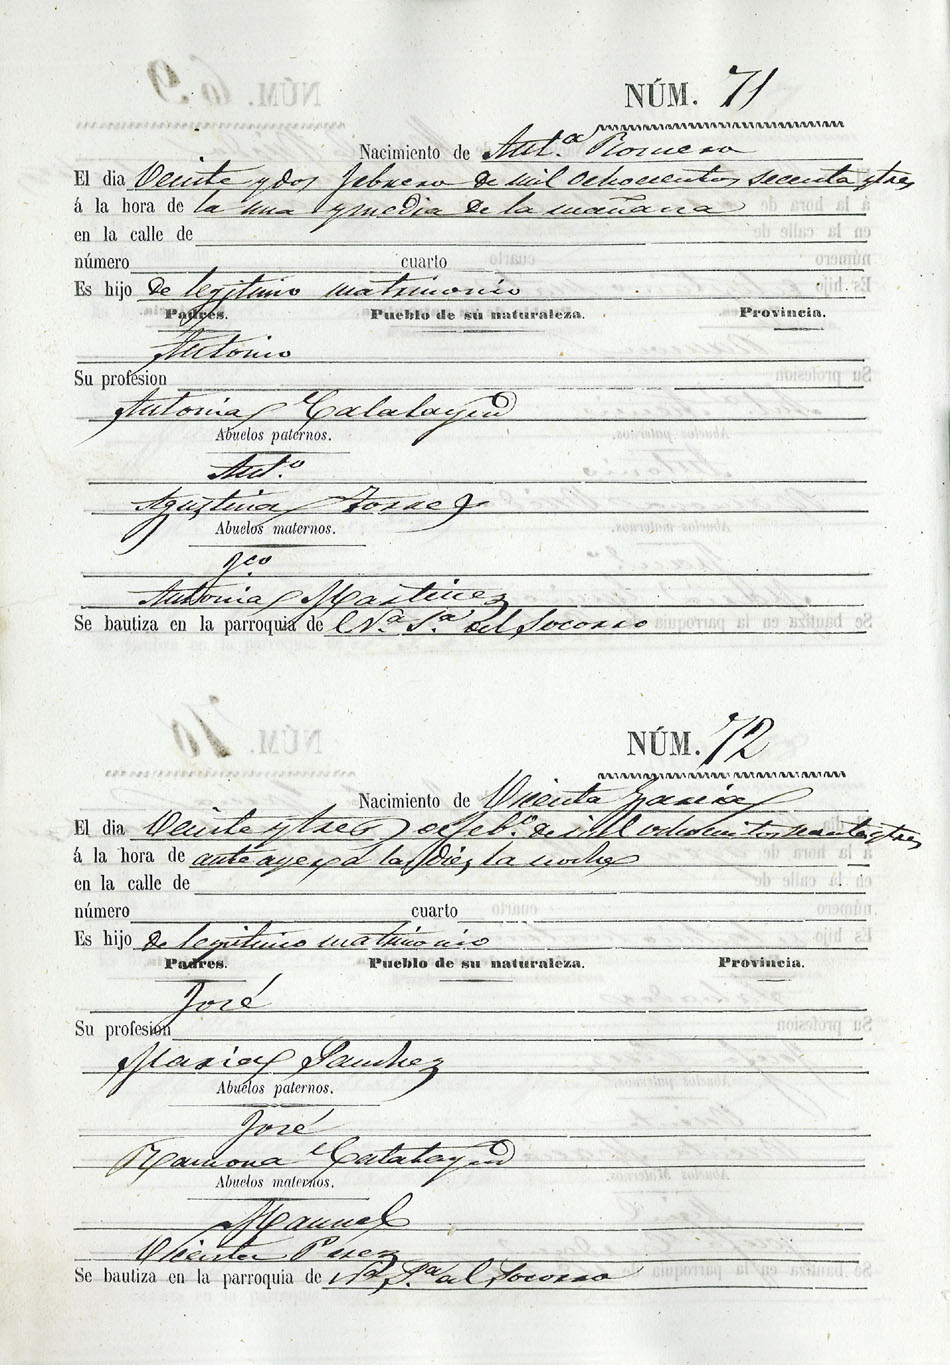 NÚM. 71
Nacimiento de Ant.ª Romero
El dia Veinte y dos febrero de mil ochocientos secenta y tres
á la hora de la una y media de la mañana
en la calle de
número cuarto
Es hijo de legitimo matrimonio
Padres. Pueblo de sú naturaleza. Provincia.
Antonio
Su profesion
Antonia Calatayud
Abuelos paternos.
Ant.º
Agustina Torres
Abuelos maternos.
Fco
Antonia Martinez
Se bautiza en la parroquia de N.ª S.ª del Socorro
NÚM. 72
Nacimiento de Vicenta Garcia
El dia Veinte y tres de feb.º de mil ochocientos secenta y tres
á la hora de ante ayer á las diez la noche
en la calle de
número cuarto
Es hijo de legitimo matrimonio
Padres. Pueblo de su naturaleza. Provincia.
José
Su profesion
Maria Sanchez
Abuelos paternos.
José
Ramona Calatayud
Abuelos maternos.
Manuel
Vicenta Perez
Se bautiza en la parroquia de Nª S.ª del Socorro